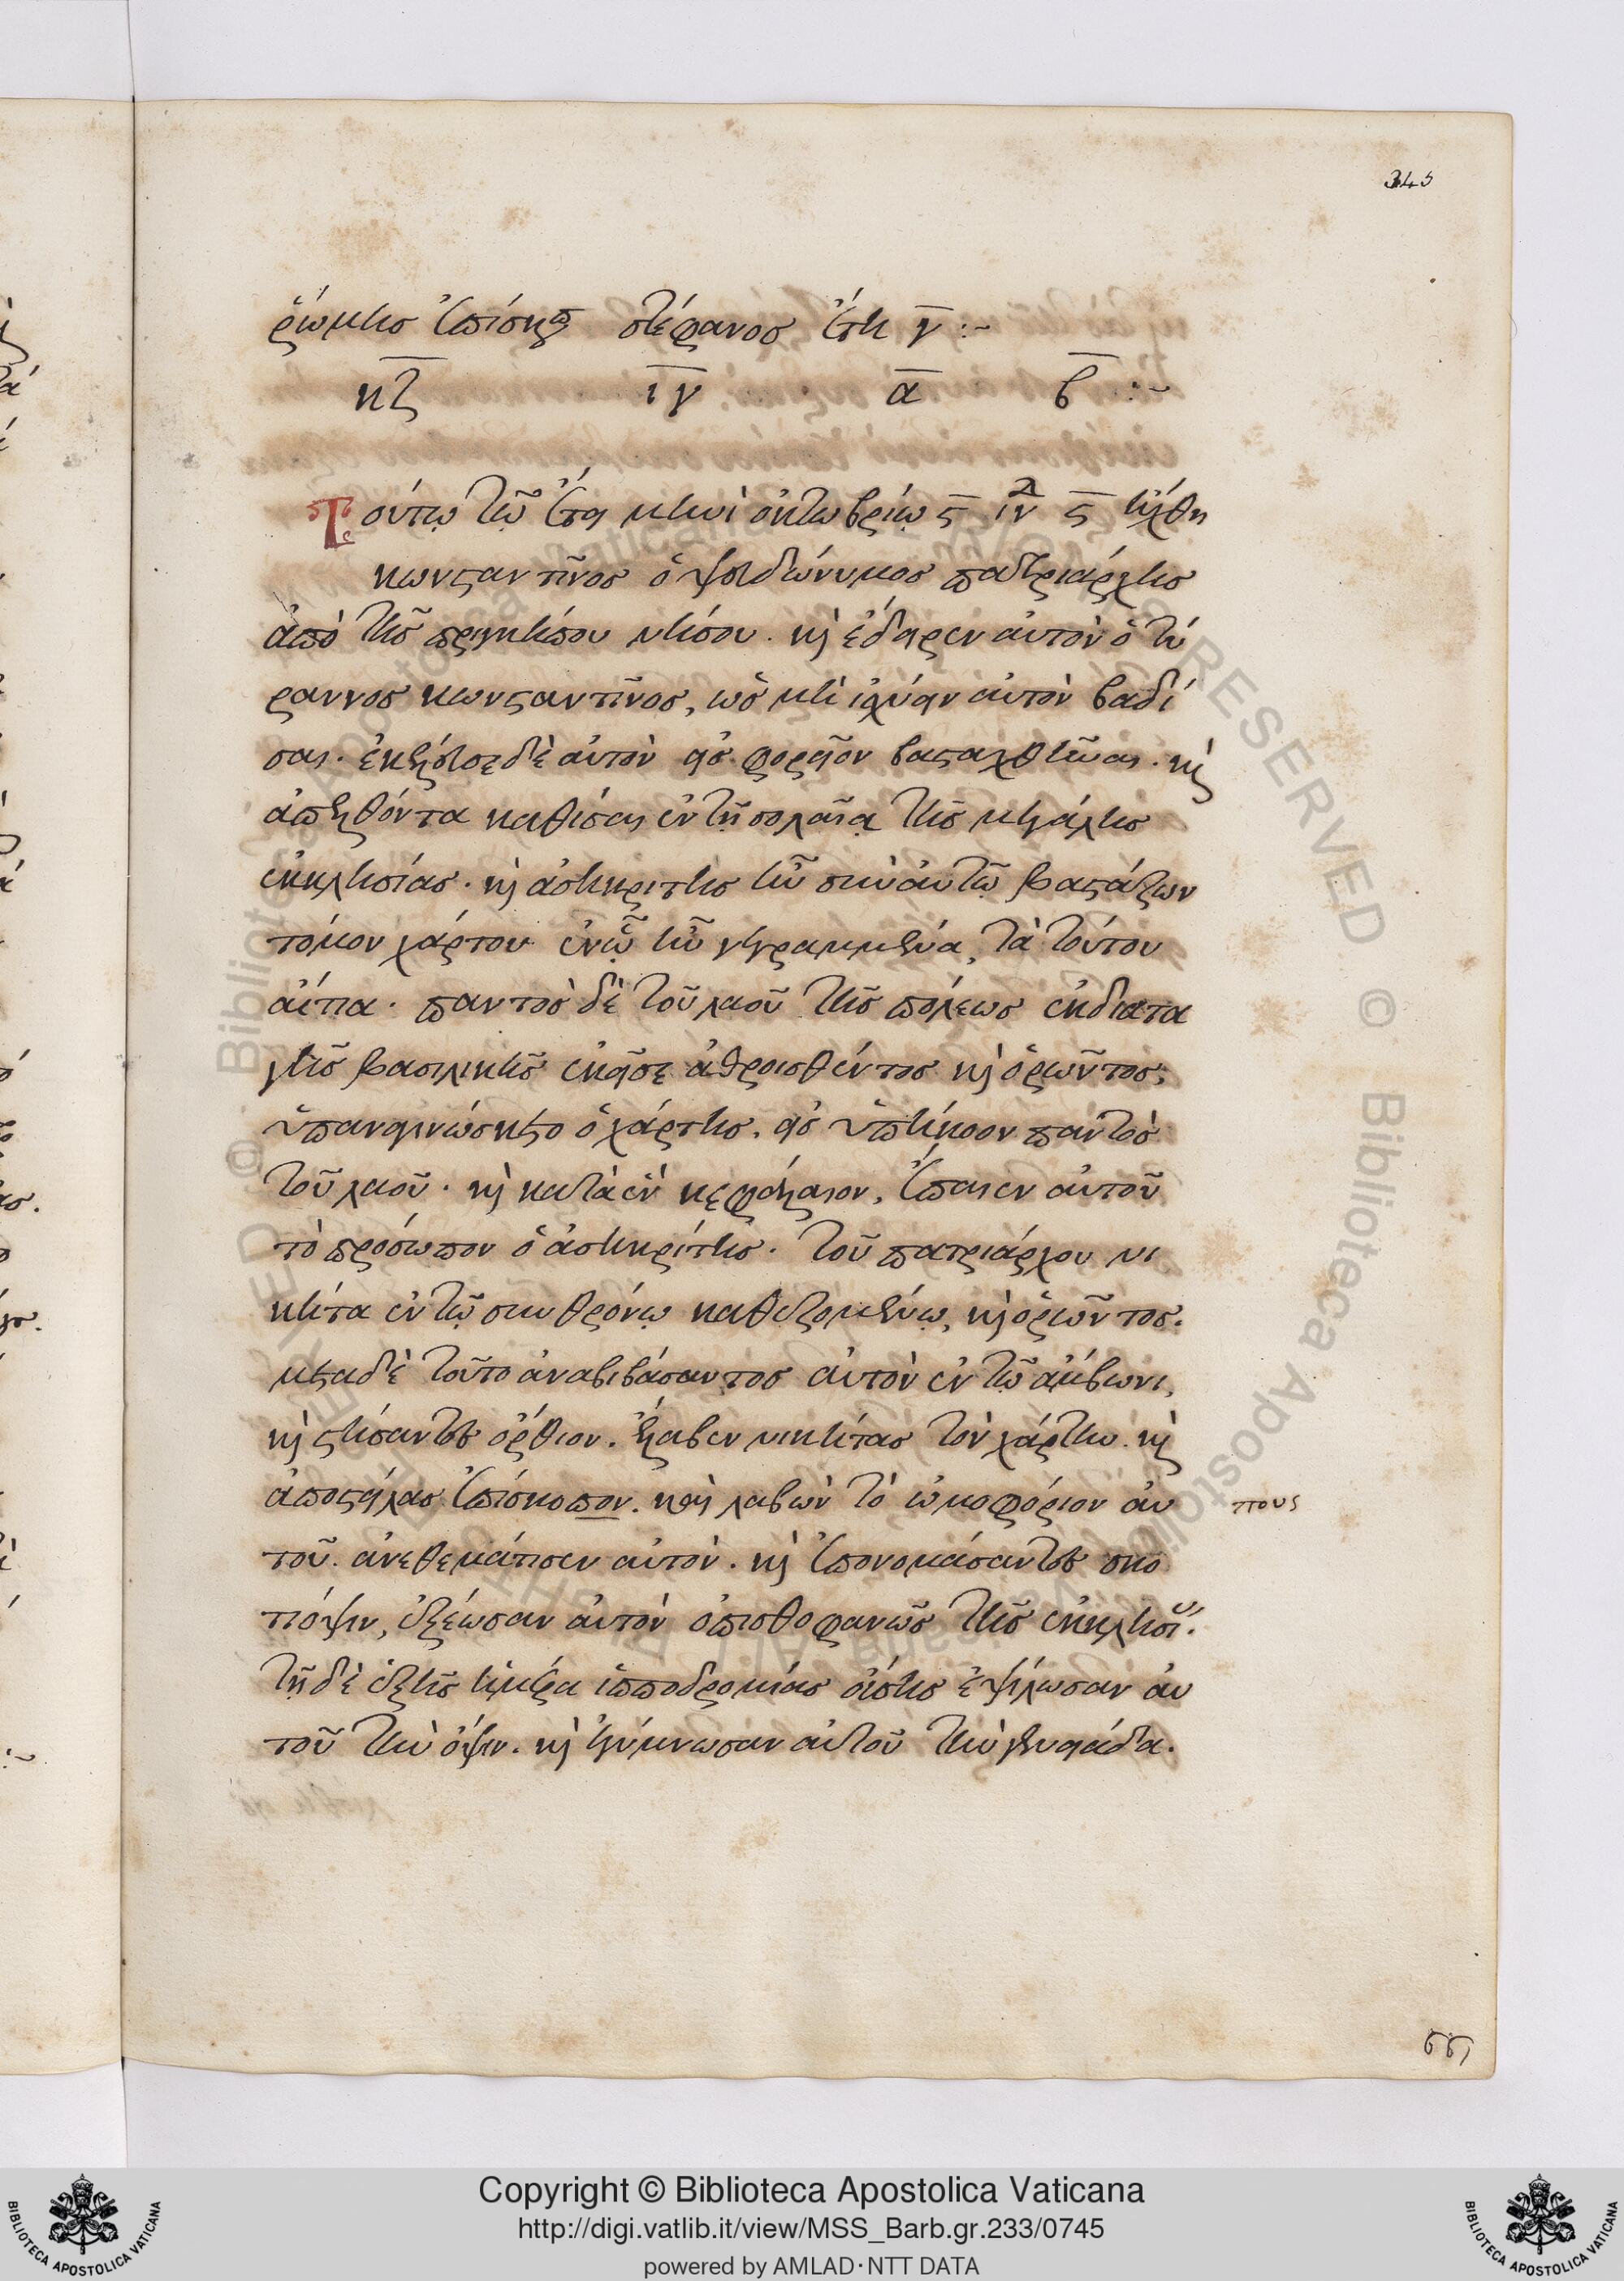 345
ῥώμης ἐπίσκοπ στέφανος ἔτη γ :~
κζ ιγ α β :~
Τούτῳ τῷ ἔτει μηνὶ ὀκτωβρίῳ ϛ ἰν ϛ ἤχθη
κωνσταντῖνος ὁ ψευδώνυμος πατριάρχης
ἀπὸ τῆς πριγκίπου νήσου. καὶ ἔδειρεν αὐτὸν ὁ τύ
ραννος κωνσταντῖνος, ὡς μὴ ἰσχύειν αὐτὸν βαδί
σαι. ἐκέλευσε δὲ αὐτὸν εἰς φορεῖον βασταχθῆναι. καὶ
ἀπελθόντα καθίσαι ἐν τῇ σολαίᾳ τῆς μεγάλης
ἐκκλησίας. καὶ ἀσηκρίτης ἦν σὺν αὐτῷ βαστάζων
τόμον χάρτου ἐν ᾧ ἦν γεγραμμένα, τὰ τούτου
αἴτια. παντὸς δὲ τοῦ λαοῦ τῆς πόλεως ἐκ διατα
γῆς βασιλικῆς ἐκεῖσε ἀθροισθέντος καὶ ὁρῶντος,
ὑπανεγινώσκετο ὁ χάρτης, εἰς ὑπήκοον παντὸς
τοῦ λαοῦ. καὶ κατὰ ἓν κεφάλαιον, ἔπαιεν αὐτοῦ
τὸ πρόσωπον ὁ ἀσηκρίτης. τοῦ πατριάρχου νι
κήτα ἐν τῷ συνθρόνῳ καθεζομένῳ, καὶ ὁρῶντος.
μετὰ δὲ τοῦτο ἀναβιβάσαντος αὐτὸν ἐν τῷ ἄμβωνι,
καὶ στήσαντες ὄρθιον. ἔλαβεν νικήτας τὸν χάρτην. καὶ
ἀποστείλας ἐπίσκοπον. καὶ λαβὼν τὸ ὠμοφόριον αὐ
πους
τοῦ. ἀνεθεμάτισεν αὐτὸν. καὶ ἐπονομάσαντες σκο
τιόψιν, ἐξέωσαν αὐτὸν ὀπισθοφανῶς τῆς ἐκκλησί.
τῇ δὲ ἑξῆς ἡμέρα ἱπποδρομίας οὔσης ἐψίλωσαν αὐ
τοῦ τὴν ὄψιν. καὶ ἐγύμνωσαν αὐτοῦ τὴν γενειάδα.
Copyright © Biblioteca Apostolica Vaticana
http://digi.vatlib.it/view/MSS_Barb.gr.233/0745
powered by AMLAD·NTT DATA